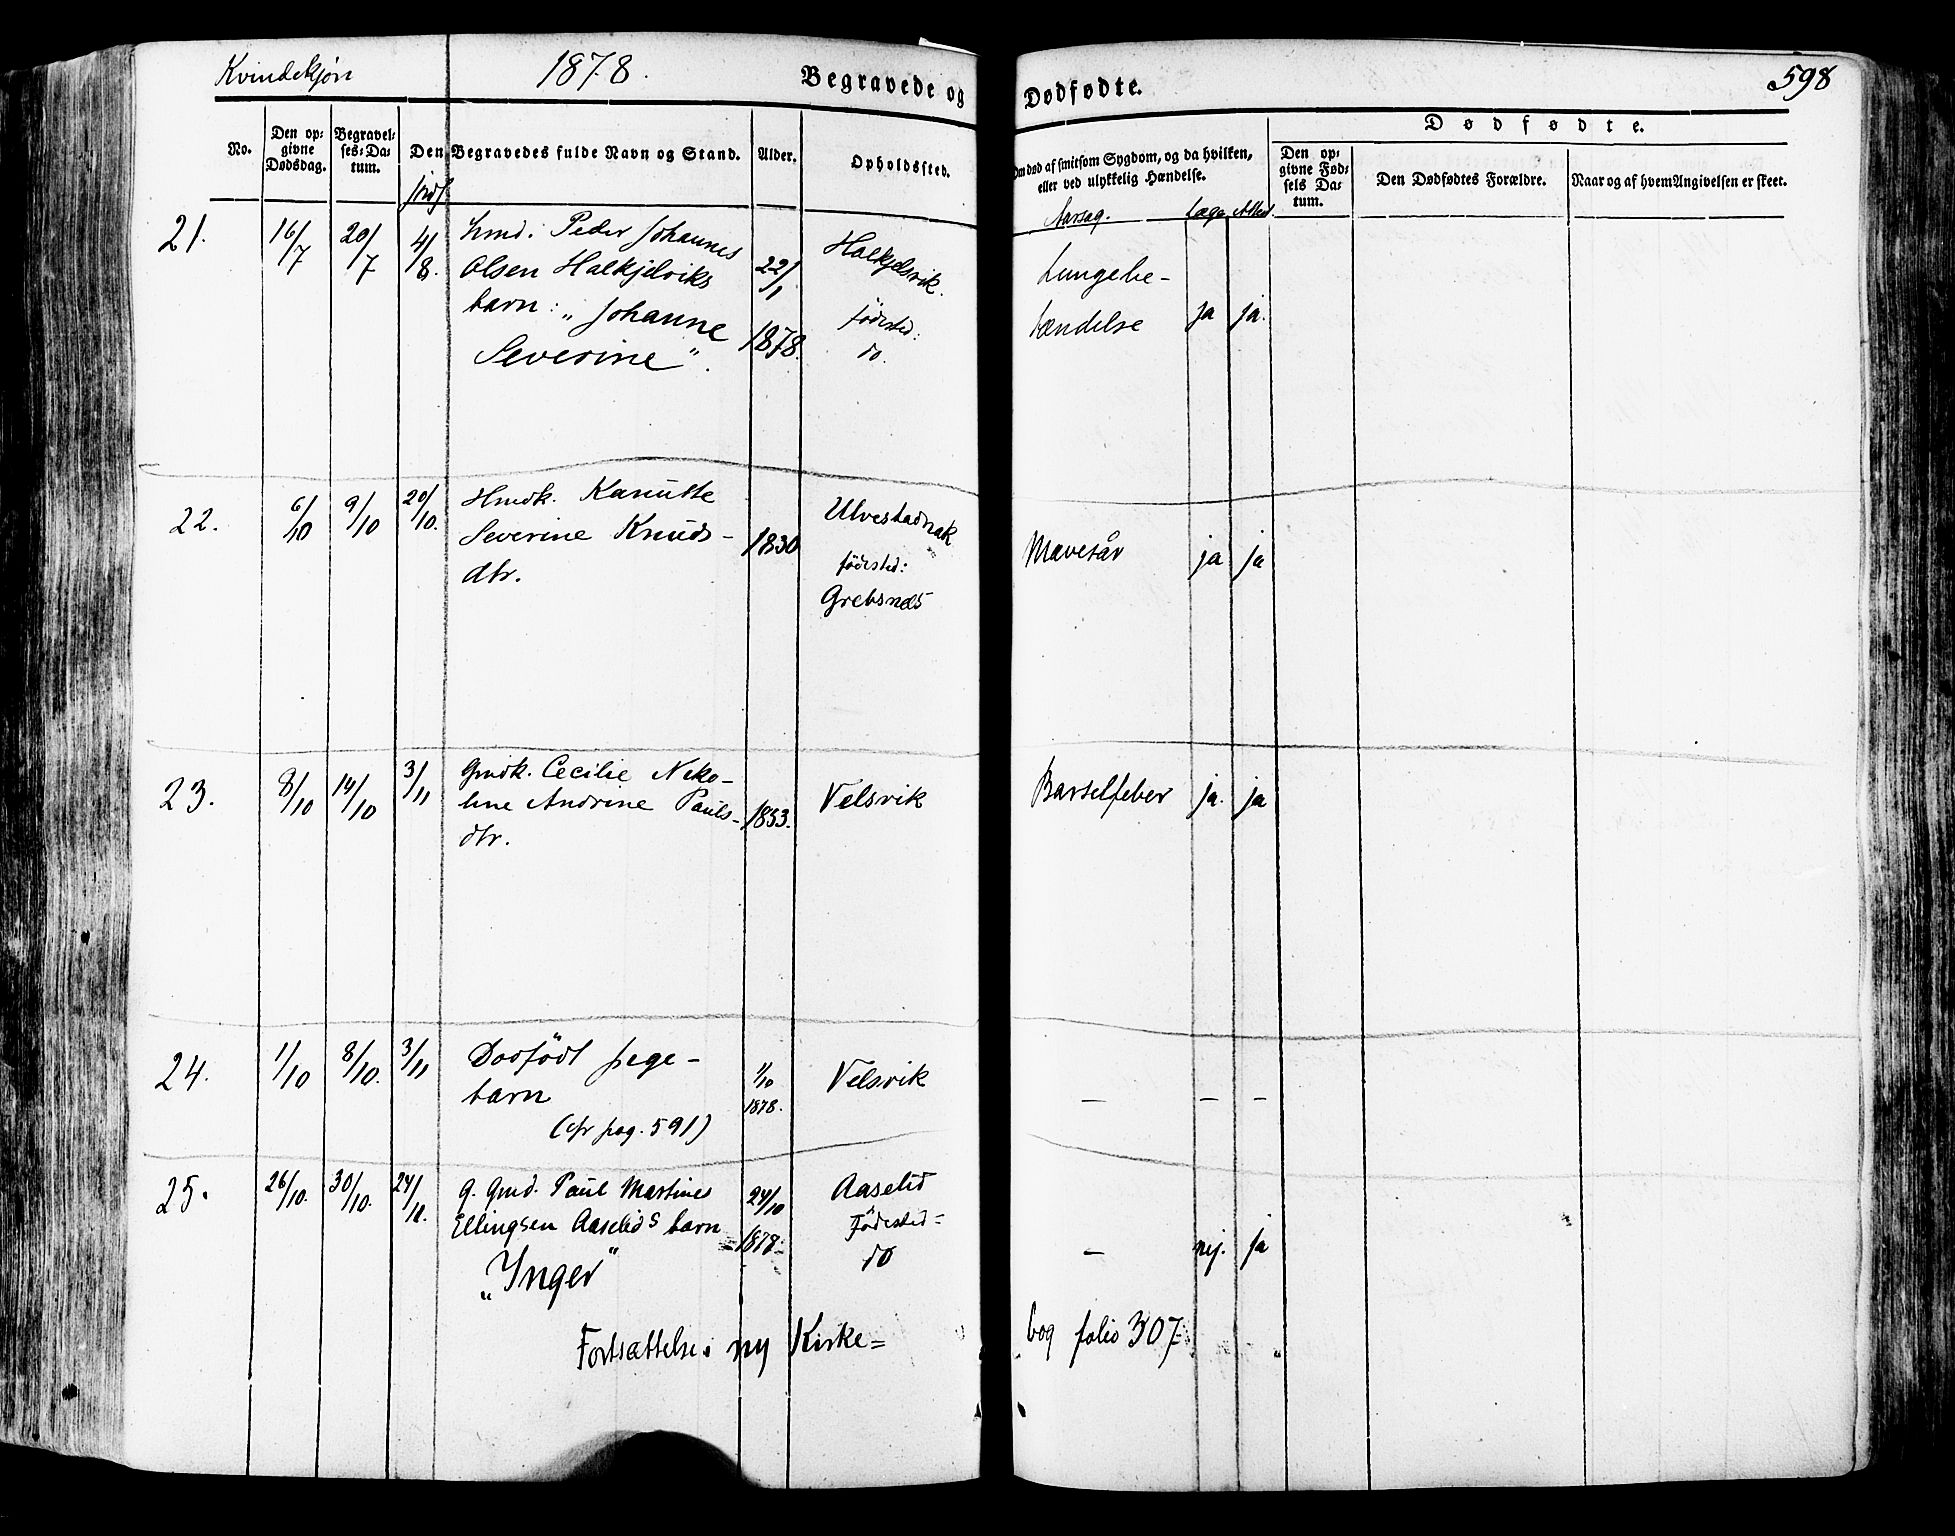 Kvindekjøn 1878. Begravede og Dødfødte. 598
No.
Den op-
givne
Dødsdag.
Begravel-
ses-Da-
tum.
jordf
Den Begravedes fulde Navn og Stand.
Alder.
Opholdssted.
Om død af smitsom Sygdom, og da hvilken,
eller ved ulykkelig Hændelse.
Aarsag. Læge Attest.
Dødfødte.
Den op-
givne Fød-
sels Da-
tum.
Den Dødfødtes Forældre.
Naar og af hvem Angivelsen er skeet.
21. 16/7 20/7 4/8 Peder Johannes
Olsen Halkjelsviks
barn: „Johanne
Severine".
22/1
1878.
Halkjelsvik.
fødested:
do.
Lungebe-
tændelse ja ja.
22. 6/10 9/10 20/10. Hmdk. Kanutte
Severine Knuds-
dtr.
1830
Ulvestadnak
fødested:
Grebsnæs
Mavesår ja ja
23. 8/10 14/10 3/11 Gmdk. Cecilie Niko-
line Andrine Pauls-
dtr.
1853.
Velsvik
Barselfeber ja. ja
24. 1/10 8/10. 3/11 Dødfødt pige-
barn
(cfr pag. 591)
1/10
1878.
Velsvik
– – –
25. 26/10. 30/10. 24/11. G. Gmd. Paul Martinus
Ellingsen Aaselids barn
„Inger"
24/10
1878.
Aaselid
Fødested=
do
– nej. ja
Fortsættelse i ny Kirke=
bog folio 307